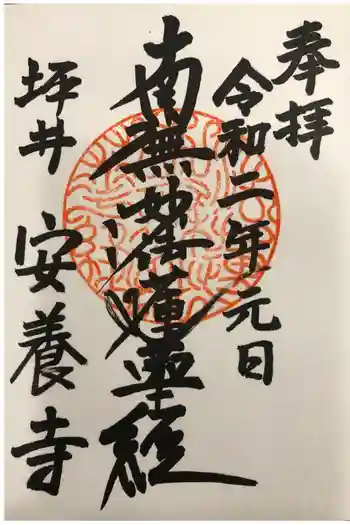 奉拝
令和二年元日
南無妙法蓮華経
坪井
安養寺